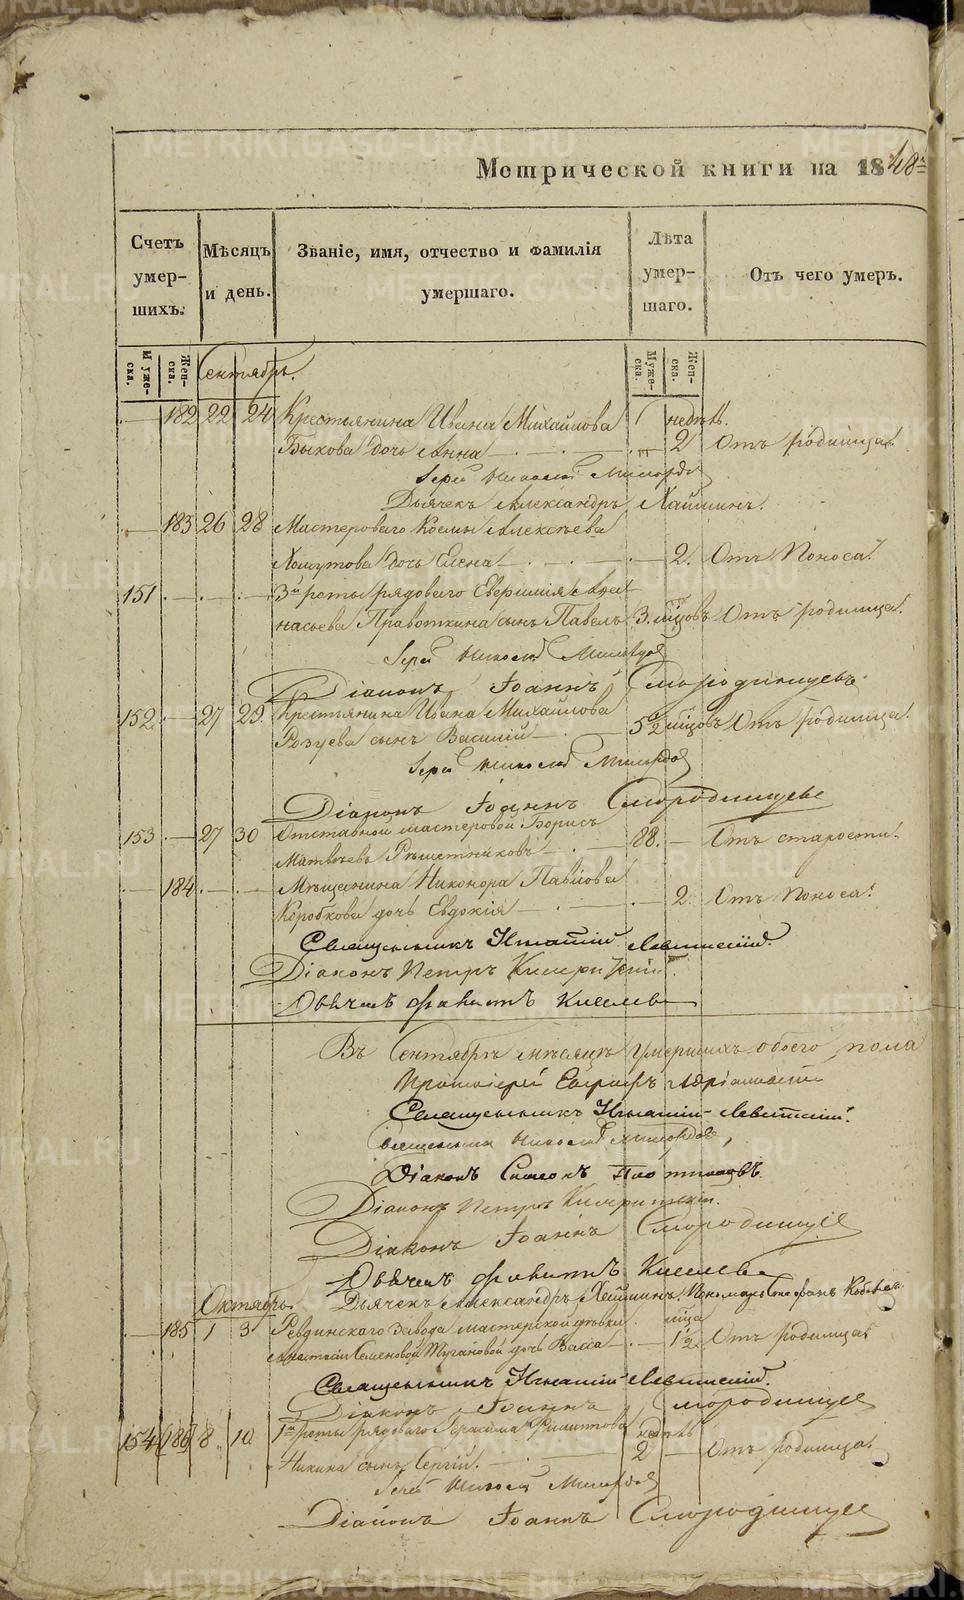 METRIKI.GASO-URAL.RU
Метрической книги на 1848
Счетъ умер-шихъ.
Мѣсяцъ и день.
Званіе, имя, отчество и фамилія умершаго.
Лѣта умер-шаго.
Отъ чего умеръ.
Муже-ска.
Жен-ска.
Муже-ска.
Жен-ска.
Сентябрь.
182 22 24 Крестьянина Ивана Михайлова недѣль.
Быкова дочь Анна 2 Отъ родимца.
Іерей Николай
Дьячекъ Александръ Хаймин.
183 26 28 Мастероваго Космы Алексѣева
Хомутова дочь Елена 2. Отъ Поноса.
151 3й роты рядоваго Евфимія Афа-
насьева Правоткина сынъ Павелъ 3. мцовъ Отъ родимца.
Іерей Николай
Діаконъ Іоаннъ Смородинцевъ
152 27 29. Крестьянина Ивана Михайлова
сынъ Василій 5½ мцовъ Отъ родимца.
Іерей Николай
Діаконъ Іоаннъ Смородинцевъ
153 27 30 Отставной мастеровой Борисъ
Матвѣевъ Рѣшетниковъ 88. Отъ старости.
184 Мѣщанина Никонора Павлова
Коробкова дочь Евдокія 2 Отъ Поноса.
Священникъ Игнатій Левитскій.
Діаконъ Петръ
Дьячекъ Киселевъ
Въ Сентябрѣ мѣсяцѣ умершихъ обоего пола
Протоіерей
Священникъ Игнатій Левитскій.
Священникъ Николай
Діаконъ Симеонъ Плотниковъ.
Діаконъ Петръ
Діаконъ Іоаннъ Смородинцевъ
Дьячекъ Киселевъ
Дьячекъ Александръ Хаймин. Пономарь Стефанъ
Октябрь.
185 1 3 Ревдинскаго Завода мастерской дѣвки мца
Анастасіи Семеновой дочь Васса 1½ Отъ родимца.
Священникъ Игнатій Левитскій.
Діаконъ Іоаннъ Смородинцевъ
154 186 8 10 1й роты рядоваго Герасима Филиппова недѣль
сынъ Сергій. 2 Отъ родимца.
Іерей Николай
Діаконъ Іоаннъ Смородинцевъ